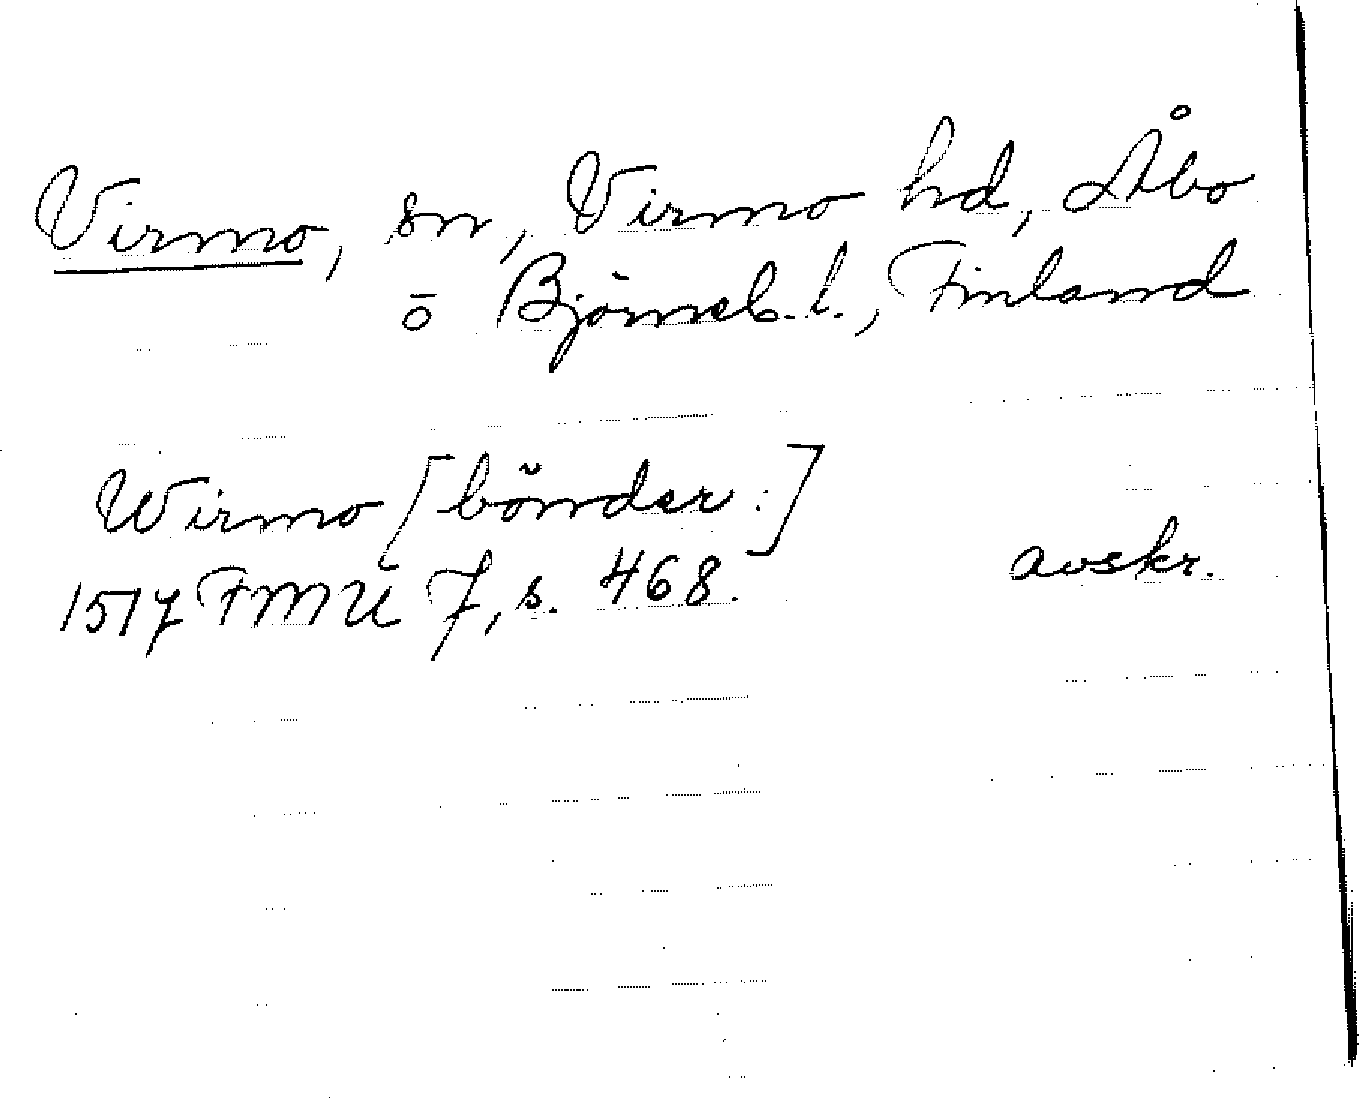 Virmo, sn, Virmo hd, Åbo
o Björneb. l., Finland
Wirmo [bönder:]
1517 FMU 7, s. 468. avskr.